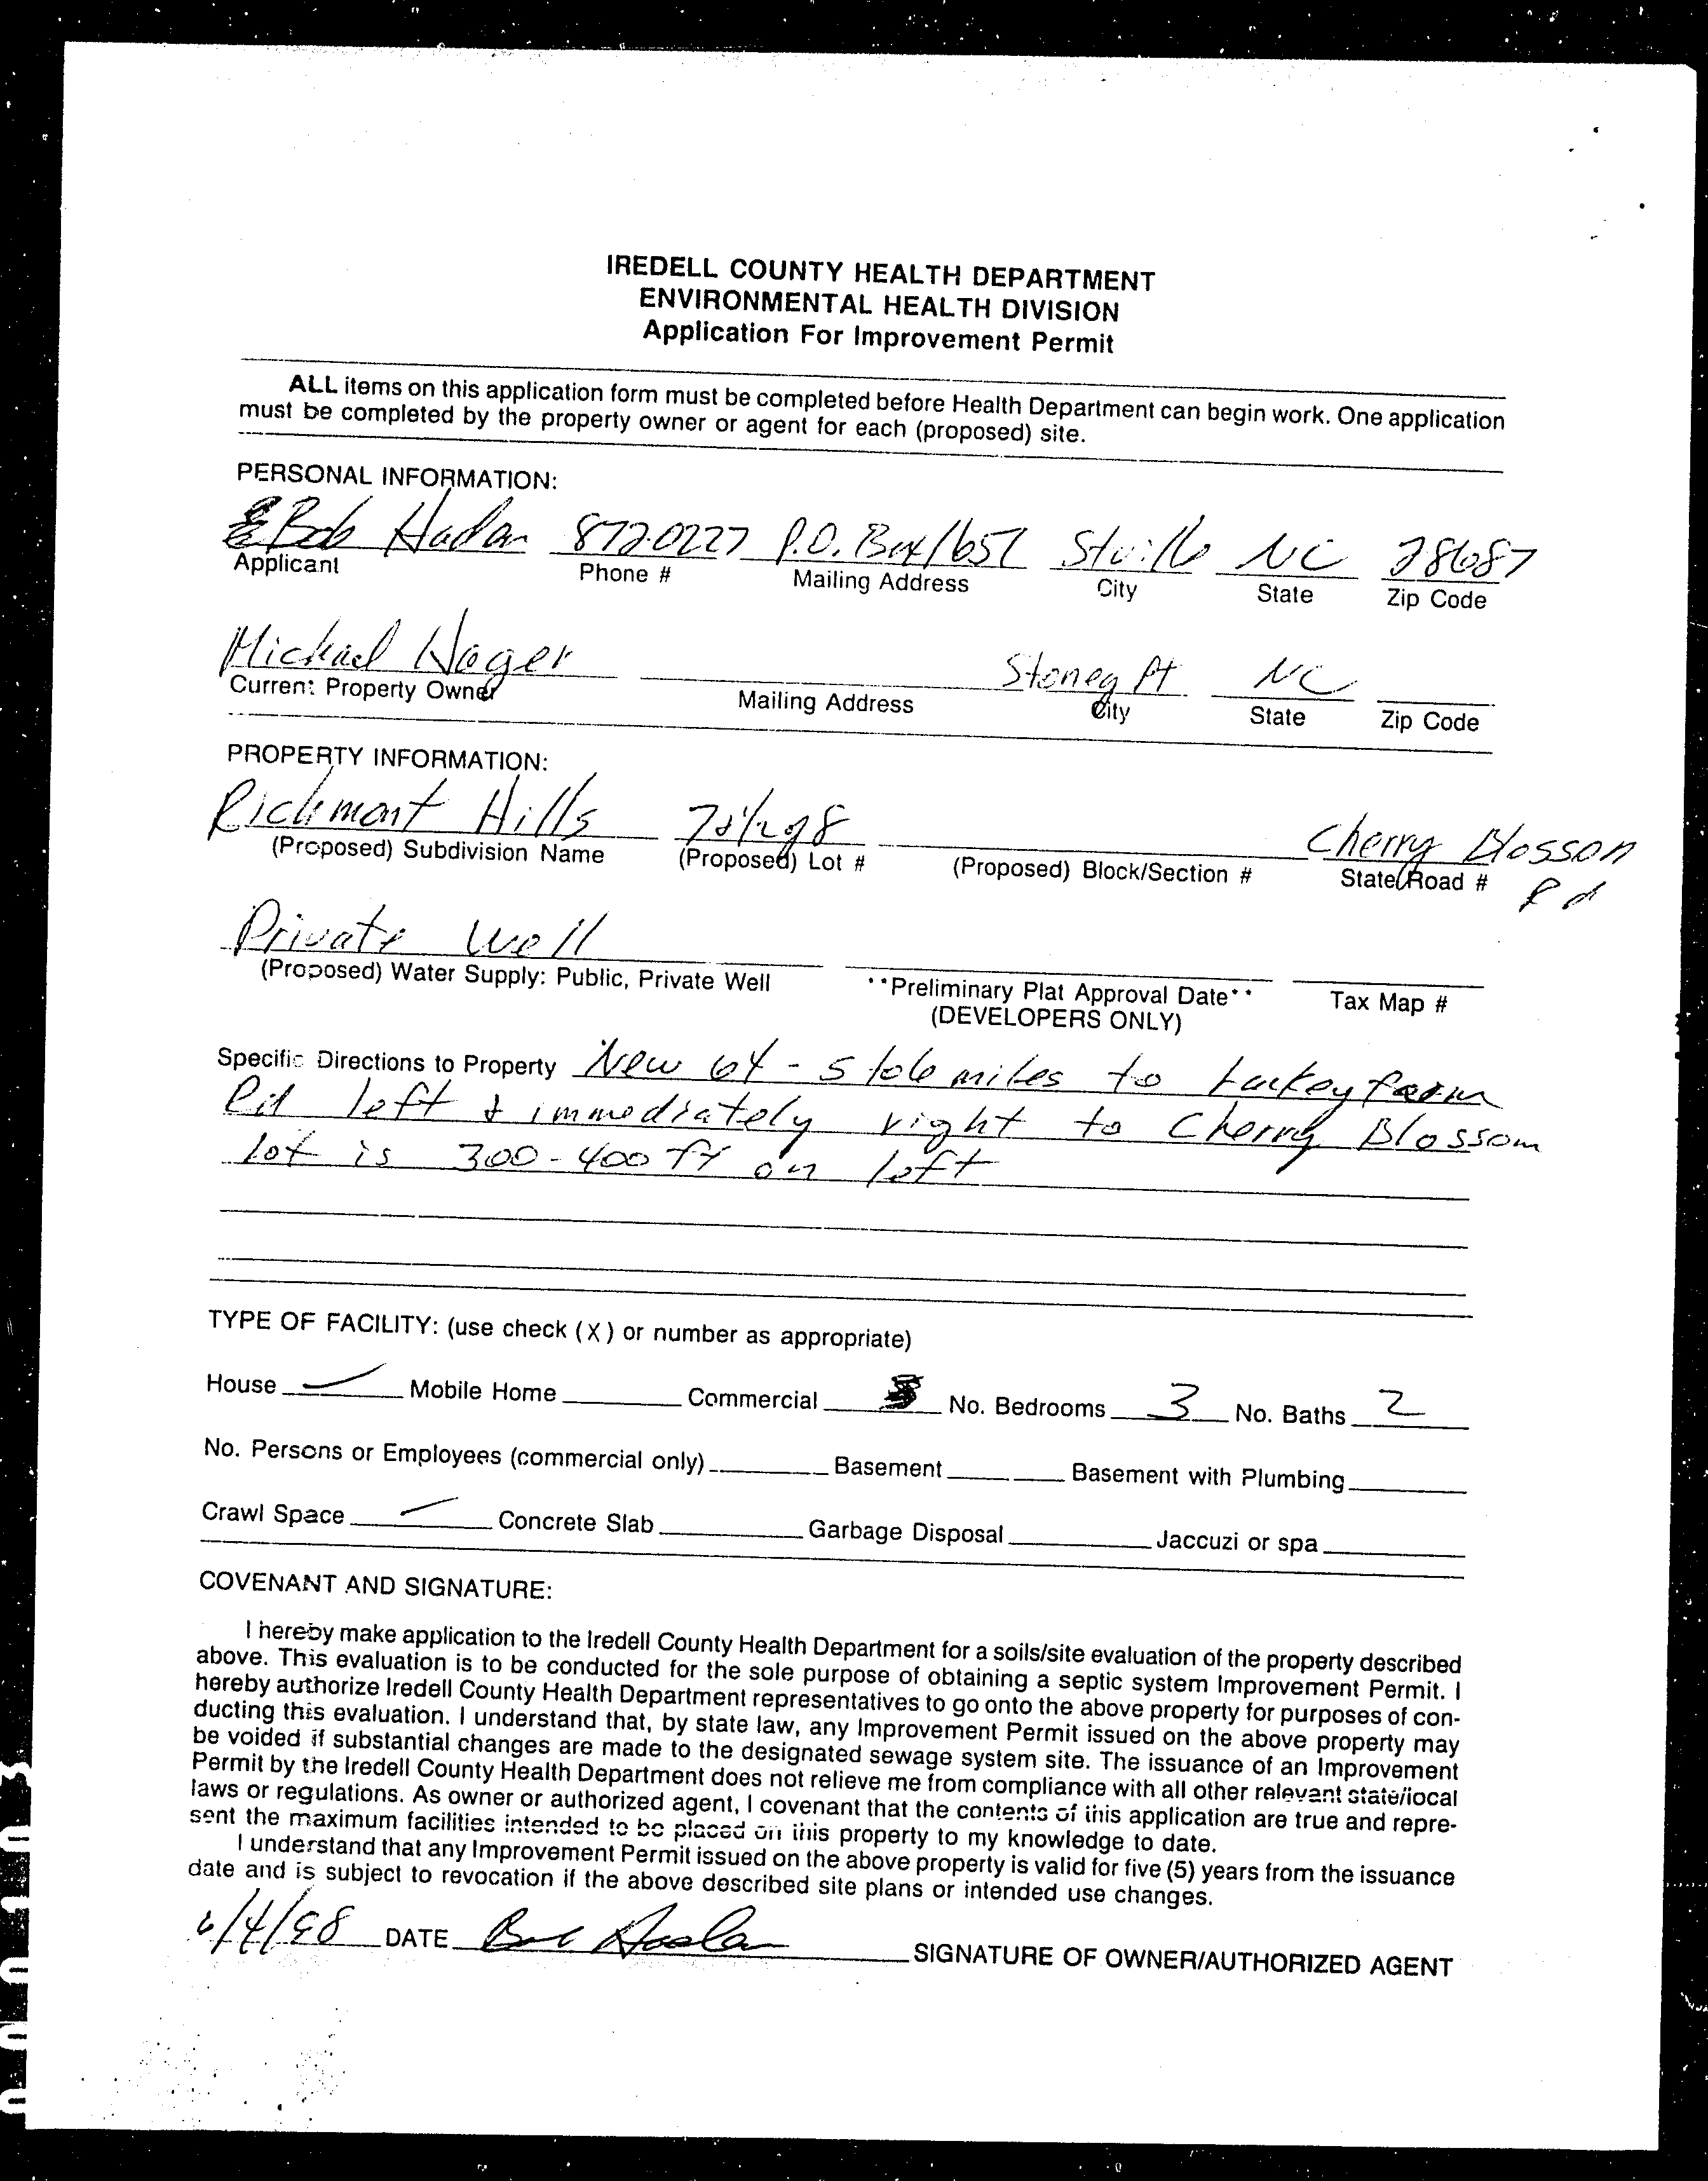 IREDELL COUNTY HEALTH DEPARTMENT
ENVIRONMENTAL HEALTH DIVISION
Application For Improvement Permit
ALL items on this application form must be completed before Health Department can begin work. One application
must be completed by the property owner or agent for each (proposed) site.
PERSONAL INFORMATION:
Bob 872-0227 P.O. Box 1651 Stville NC 28687
Applicant Phone # Mailing Address City State Zip Code
Michael Stoney Pt NC
Current Property Owner Mailing Address City State Zip Code
PROPERTY INFORMATION:
Richmont Hills Cherry Blosson
(Proposed) Subdivision Name (Proposed) Lot # (Proposed) Block/Section # State Road #
Rd
Private Well
(Proposed) Water Supply: Public, Private Well **Preliminary Plat Approval Date** Tax Map #
(DEVELOPERS ONLY)
Specific Directions to Property New 64 - 5 to 6 miles to Lackey farm
Rd left & immediately right to Cherry Blossom
lot is 300-400 ft on left
TYPE OF FACILITY: (use check (X) or number as appropriate)
House Mobile Home Commercial No. Bedrooms 3 No. Baths 2
No. Persons or Employees (commercial only) Basement Basement with Plumbing
Crawl Space Concrete Slab Garbage Disposal Jaccuzi or spa
COVENANT AND SIGNATURE:
I hereby make application to the Iredell County Health Department for a soils/site evaluation of the property described
above. This evaluation is to be conducted for the sole purpose of obtaining a septic system Improvement Permit. I
hereby authorize Iredell County Health Department representatives to go onto the above property for purposes of con-
ducting this evaluation. I understand that, by state law, any Improvement Permit issued on the above property may
be voided if substantial changes are made to the designated sewage system site. The issuance of an Improvement
Permit by the Iredell County Health Department does not relieve me from compliance with all other relevant state/local
laws or regulations. As owner or authorized agent, I covenant that the contents of this application are true and repre-
sent the maximum facilities intended to be placed on this property to my knowledge to date.
I understand that any Improvement Permit issued on the above property is valid for five (5) years from the issuance
date and is subject to revocation if the above described site plans or intended use changes.
6/4/98 DATE Bob SIGNATURE OF OWNER/AUTHORIZED AGENT